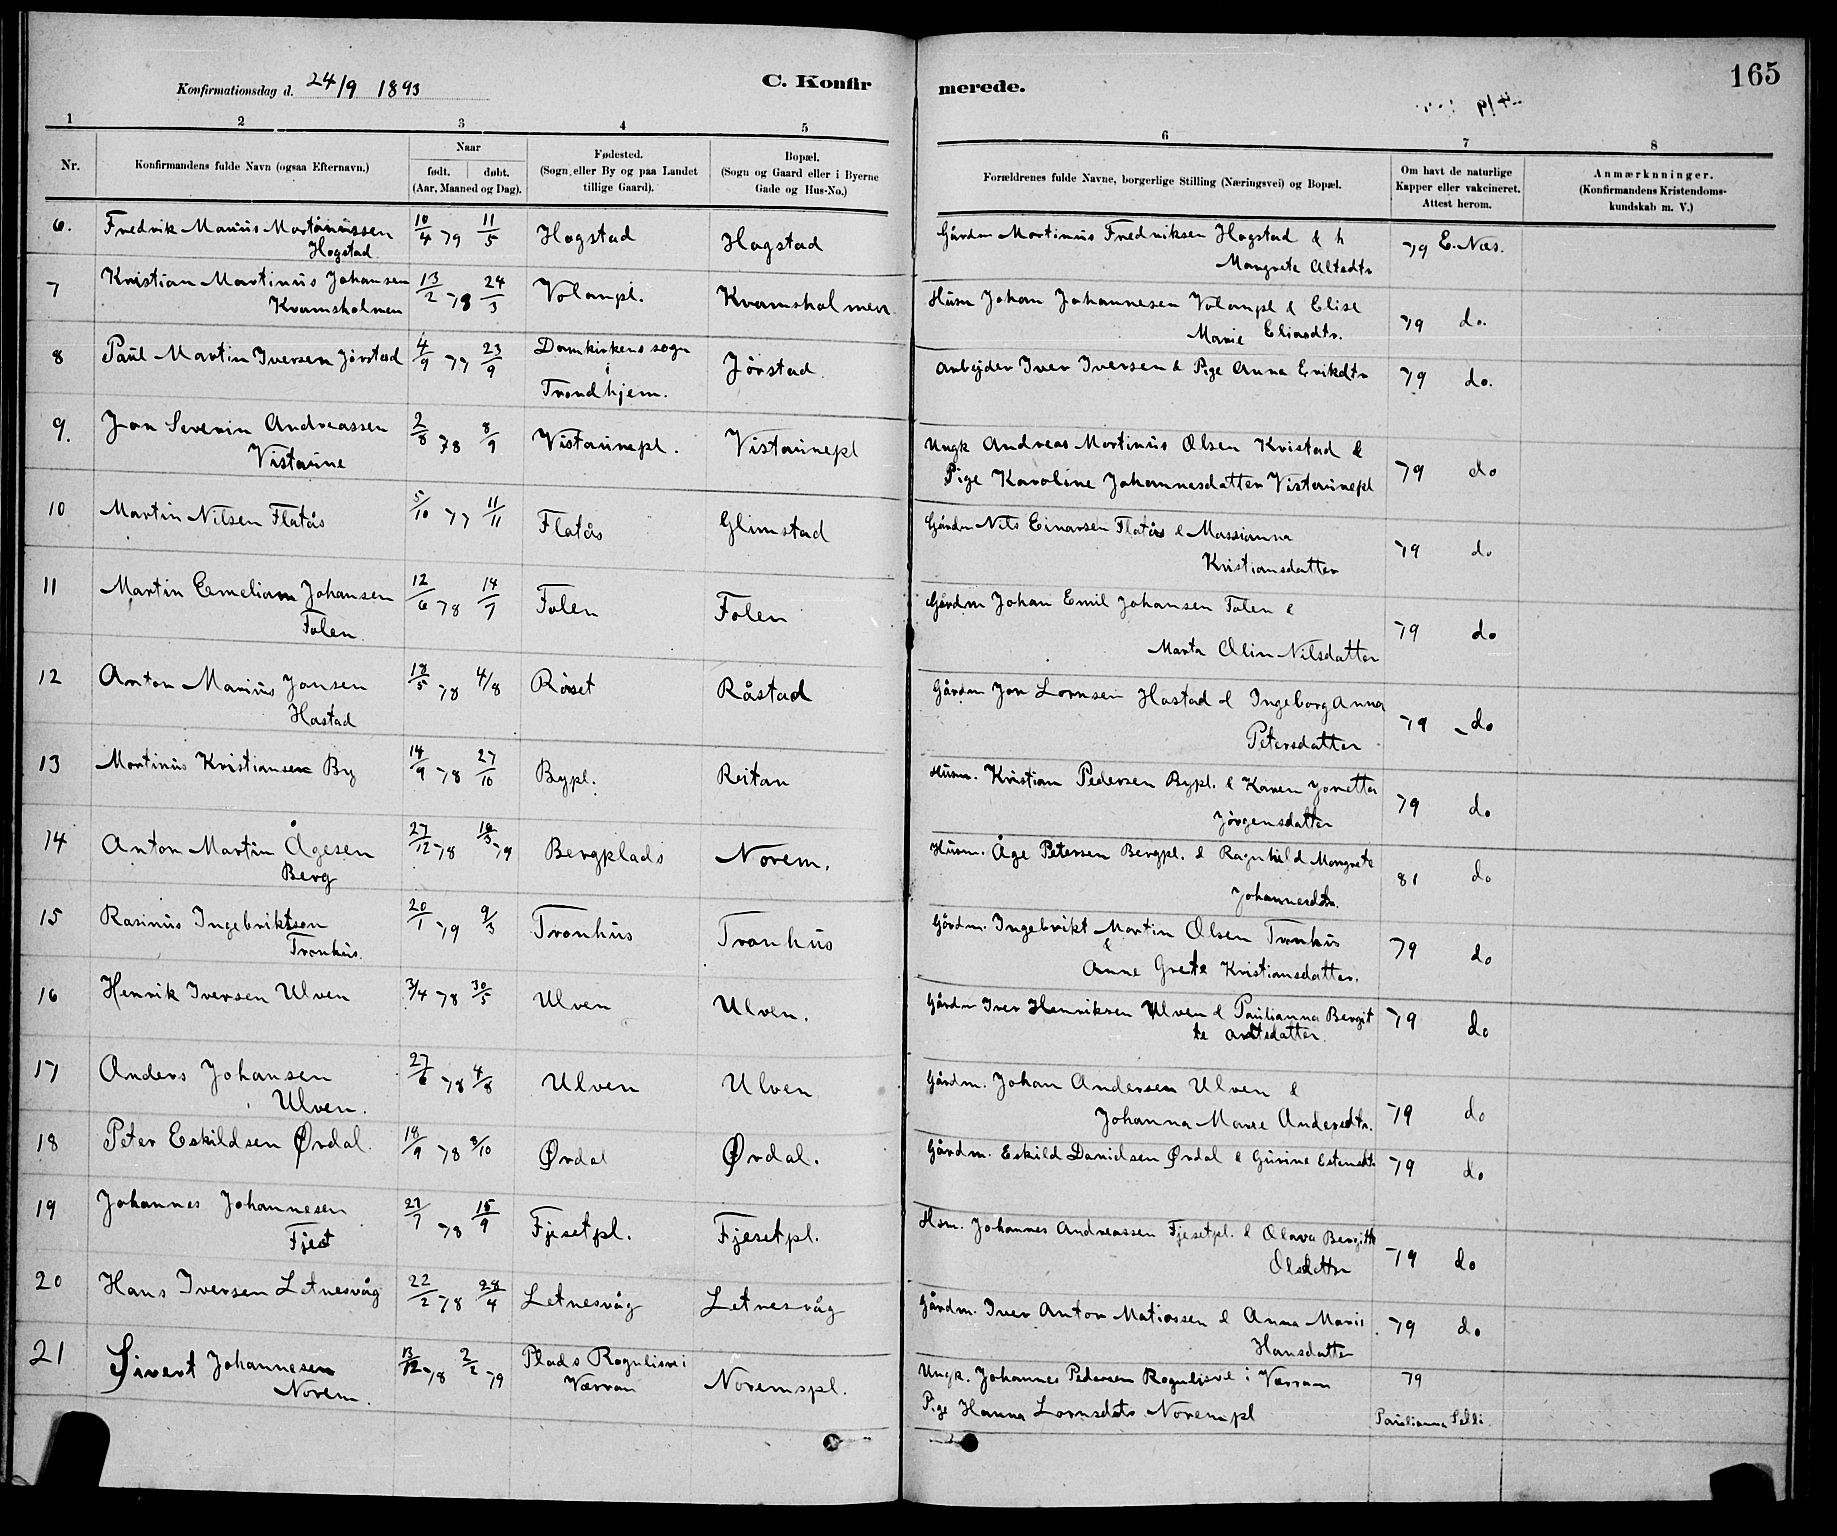 165
Konfirmationsdag d. 24/9 1893
C. Konfir merede.
1 2 3 4 5 6 7 8
Nr.
Konfirmandens fulde Navn (ogsaa Efternavn.)
Naar
født. døbt.
(Aar, Maaned og Dag).
Fødested.
(Sogn eller By og paa Landet
tillige Gaard).
Bopæl.
(Sogn og Gaard eller i Byerne
Gade og Hus-No.)
Forældrenes fulde Navne, borgerlige Stilling (Næringsvei) og Bopæl.
Om havt de naturlige
Kapper eller vakcineret.
Attest herom.
Anmærkninger.
(Konfirmandens Kristendoms-
kundskab m. V.)
6. Fredrik Marius Martinussen 10/4 79 11/5 Hogstad Hogstad Gårdm Martinus Fredriksen Hogstad & h 79 E. Næs.
Hogstad Margrete Altsdtr
7 Kristian Martinus Johansen 13/2 78 24/3 Volanpl. Kvamsholmen Husm Johan Johannesen Volanpl & Elise 79 do.
Kvamsholmen Marie Eliasdtr.
8 Paul Martin Iversen Jörstad 4/9 77 23/9 Domkirkens sogn Jörstad. Arbejder Iver Iversen & Pige Anna Erikdtr 79 do.
i
Trondhjem.
9. Jon Severin Andreassen 2/8 78 8/9 Vistaunepl. Vistaunepl Ungk Andreas Martinus Olsen Kvistad & 79 do
Vistaune Pige Karoline Johannesdatter Vistaunepl
10 Martin Nilsen Flatås 5/10 77 11/11 Flatås Glimstad Gårdm Nils Einarsen Flatås & Massianna 79 do
Kristiansdatter
11 Martin Emelian Johansen 12/6 78 14/7 Folen Folen Gårdm Johan Emil Johansen Folen & 79 do
Folen. Marta Olin Nilsdatter
12 Anton Marius Jonsen 18/5 78 4/8 Röset Råstad Gårdm Jon Lornsen Hastad & Ingeborg Anna 79 do
Hastad Petersdatter
13 Martinus Kristiansen By 14/9 78 27/10 Bypl. Reitan Husm. Kristian Pedersen Bypl. & Karen Jonetta 79 do
Jörgensdatter
14 Anton Martin Ågesen 27/12 78 16/3 79 Bergplads Norem. Husm. Åge Petersen Bergpl. & Ragnhild Margrete 81 do
Berg Johannesdtr.
15 Rasmus Ingebriktsen 20/1 79 9/3 Tronhus Tronhus Gårdm. Ingebrikt Martin Olsen Tronhus 79 do
Tronhus. & Anne Grete Kristiansdatter.
16 Henrik Iversen Ulven 3/4 78 30/5 Ulven Ulven. Gårdm Iver Henriksen Ulven & Paulianna Bergit 79 do
te Arntsdatter.
17 Anders Johansen 27/6 78 4/8 Ulven Ulven Gårdm. Johan Andersen Ulven & 79 do
Ulven. Johanna Marie Andersdtr.
18 Peter Eskildsen Ørdal. 18/9 78 8/10 Ørdal Ørdal. Gårdm. Eskild Danielsen Ørdal & Gurine Estensdtr 79 do
19 Johannes Johannesen 27/7 78 15/9 Fjesetpl. Fjesetpl. Hsm. Johannes Andreassen Fjesetpl. & Olava Bergitte 79 do
Fjeset Olsdatter
20 Hans Iversen Letnesvåg 22/2 78 28/4 Letnesvåg Letnesvåg Gårdm. Iver Anton Matiassen & Anna Marie 79 do
Hansdatter
21 Sivert Johannesen 13/12 78 2/2 79 Plads Rognlisve i Noremspl. Ungk. Johannes Pedersen Rognlisve i Værran 79
Norem. Værran Pige Hanna Lornsdatr Norempl Paulianna Selli.